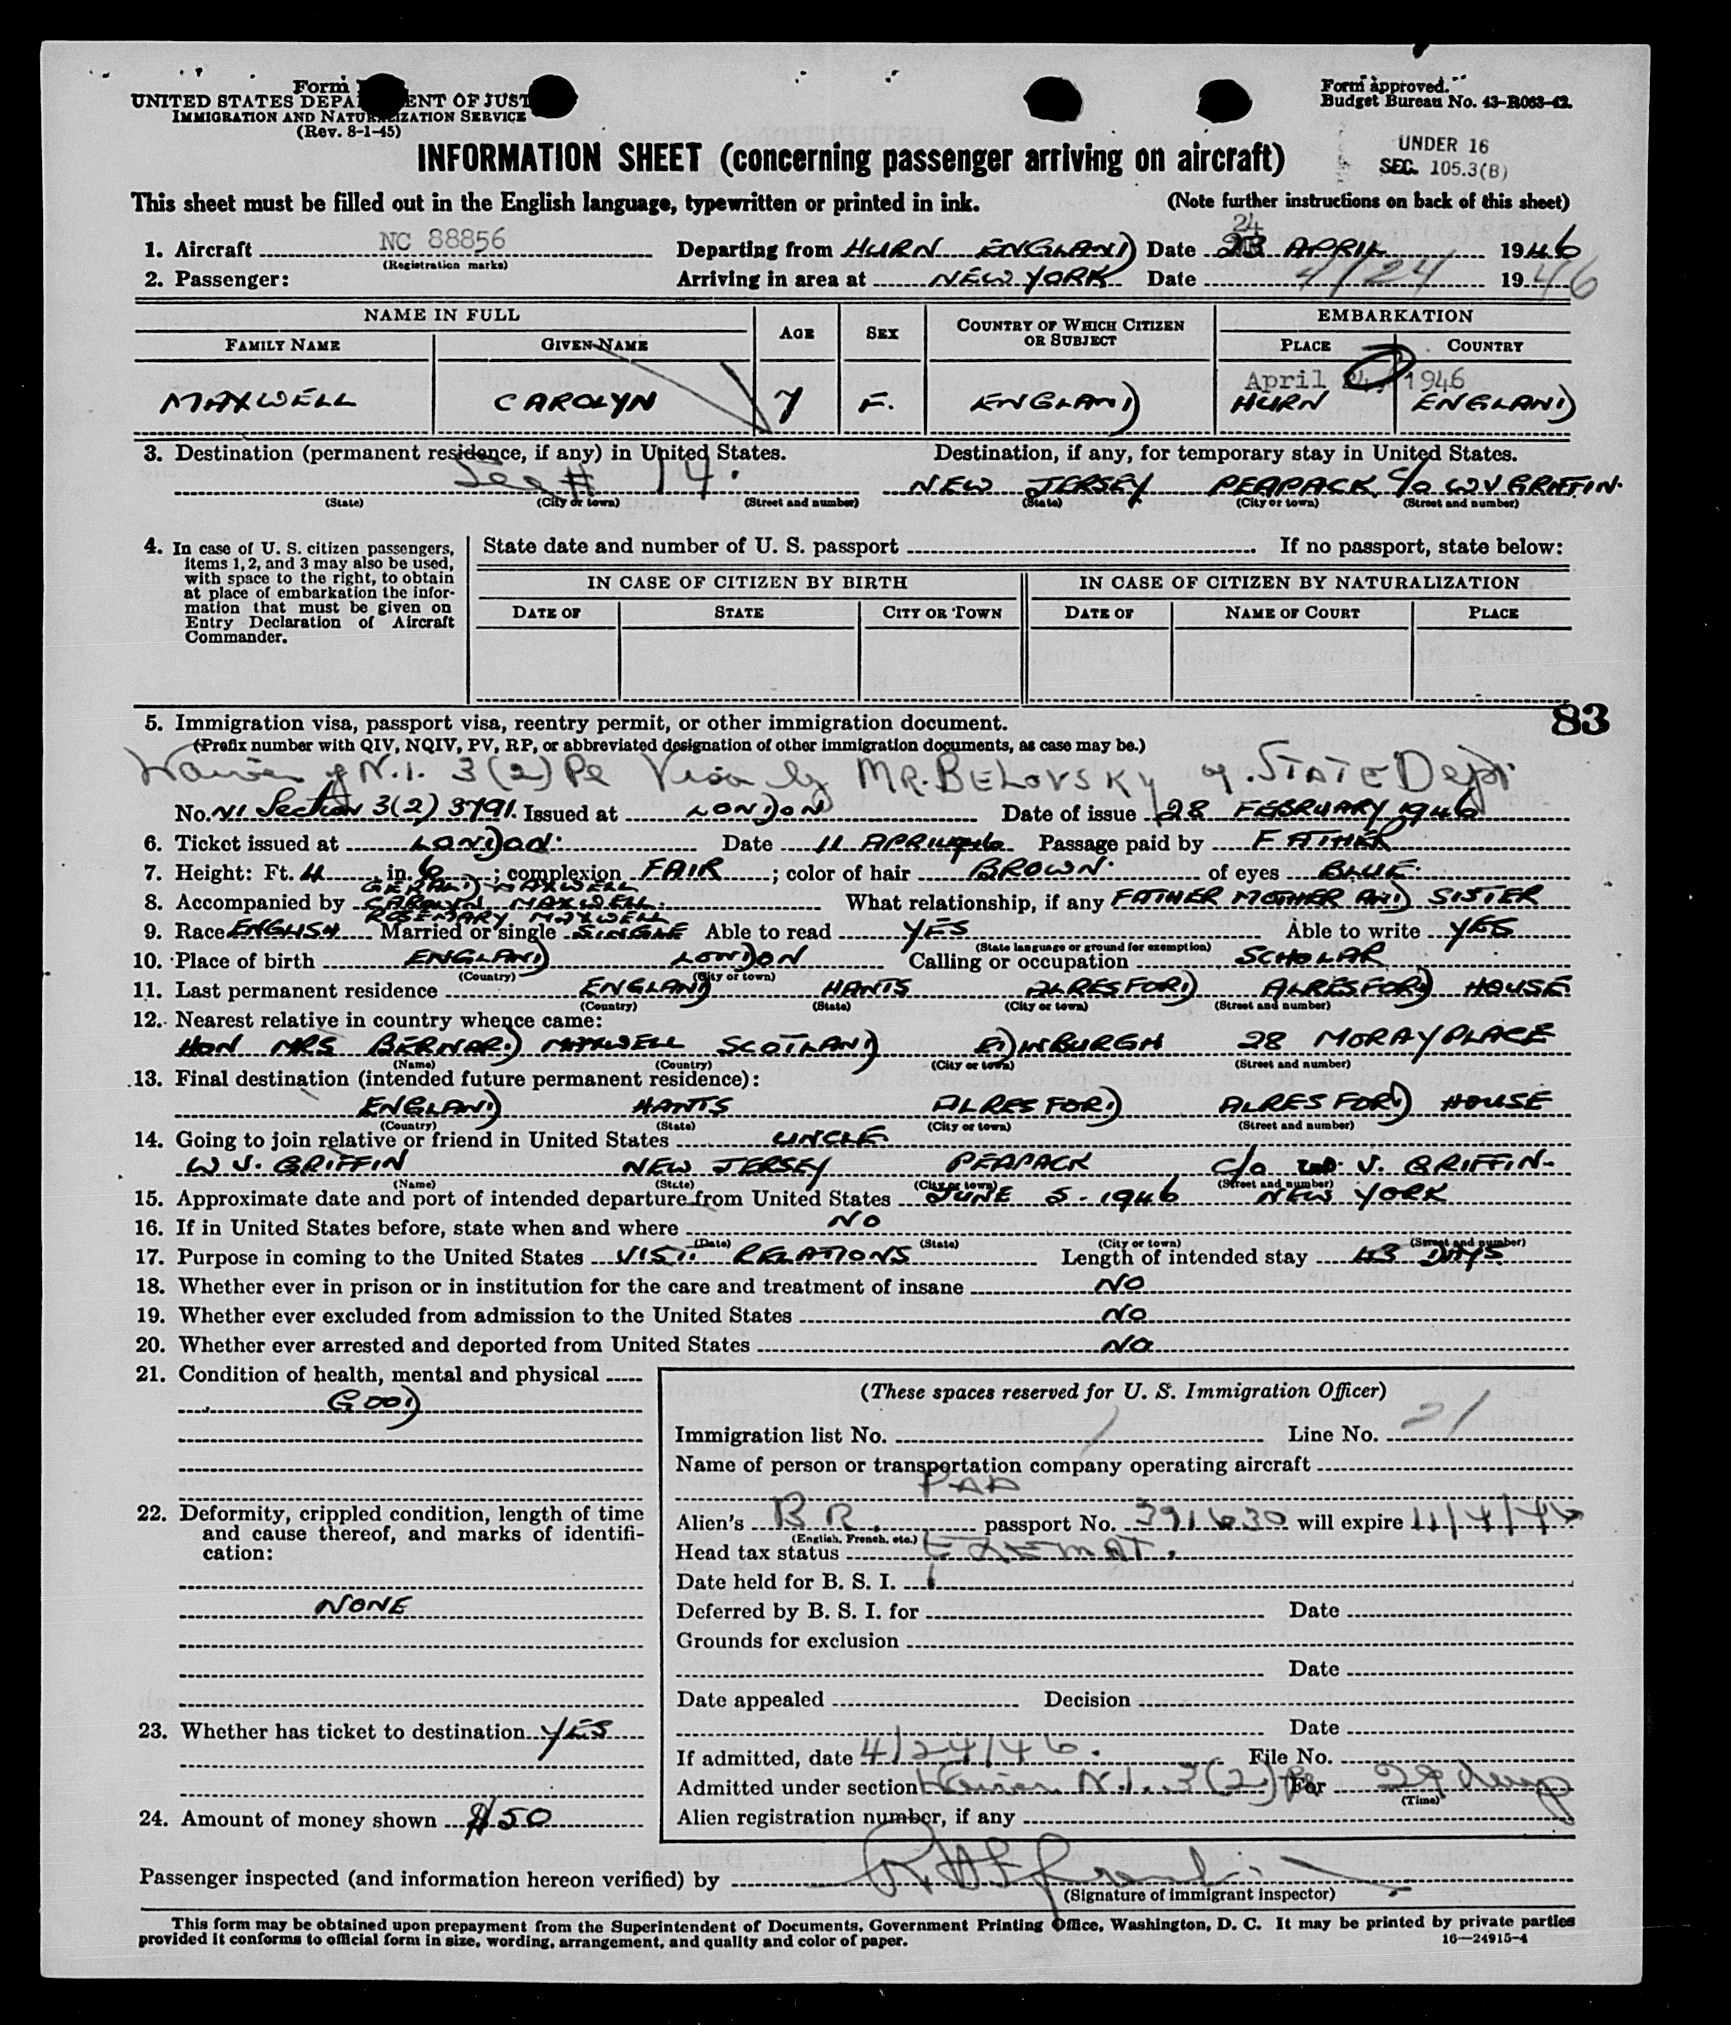 Form
UNITED STATES DEPARTMENT OF JUST
IMMIGRATION AND NATURALIZATION SERVICE
(Rev. 8-1-45)
Form approved.
Budget Bureau No. 43-R063-42.
UNDER 16
SEC. 105.3(B)
INFORMATION SHEET (concerning passenger arriving on aircraft)
This sheet must be filled out in the English language, typewritten or printed in ink. (Note further instructions on back of this sheet)
24
1. Aircraft NC 88856 Departing from HURN ENGLAND Date 23 APRIL 1946
(Registration marks)
2. Passenger: Arriving in area at NEW YORK Date 4/24 1946
NAME IN FULL AGE SEX COUNTRY OF WHICH CITIZEN OR SUBJECT EMBARKATION
FAMILY NAME GIVEN NAME PLACE COUNTRY
April 24, 1946
MAXWELL CAROLYN 7 F. ENGLAND HURN ENGLAND
3. Destination (permanent residence, if any) in United States. Destination, if any, for temporary stay in United States.
See # 14. NEW JERSEY PEAPACK C/o W V GRIFFIN.
(State) (City or town) (Street and number) (State) (City or town) (Street and number)
4. In case of U. S. citizen passengers, items 1, 2, and 3 may also be used, with space to the right, to obtain at place of embarkation the information that must be given on Entry Declaration of Aircraft Commander.
State date and number of U. S. passport If no passport, state below:
IN CASE OF CITIZEN BY BIRTH IN CASE OF CITIZEN BY NATURALIZATION
DATE OF STATE CITY OR TOWN DATE OF NAME OF COURT PLACE
83
5. Immigration visa, passport visa, reentry permit, or other immigration document.
(Prefix number with QIV, NQIV, PV, RP, or abbreviated designation of other immigration documents, as case may be.)
Waiver of N.I. 3(2) Pe Visa by MR. BELOVSKY of STATE Dept
No. VI Section 3(2) 3791. Issued at LONDON Date of issue 28 FEBRUARY 1946
6. Ticket issued at LONDON. Date 11 APRIL 46 Passage paid by FATHER
7. Height: Ft. 4 in. 6 ; complexion FAIR ; color of hair BROWN. of eyes BLUE.
GERALD MAXWELL
8. Accompanied by CAROLYN MAXWELL. What relationship, if any FATHER MOTHER AND SISTER
ROSEMARY MAXWELL
9. Race ENGLISH Married or single SINGLE Able to read YES Able to write YES
(State language or ground for exemption)
10. Place of birth ENGLAND LONDON Calling or occupation SCHOLAR
(Country) (City or town)
11. Last permanent residence ENGLAND HANTS ALRESFORD ALRESFORD HOUSE
(Country) (State) (City or town) (Street and number)
12. Nearest relative in country whence came:
HON MRS BERNARD MAXWELL SCOTLAND EDINBURGH 28 MORAY PLACE
(Name) (Country) (City or town) (Street and number)
13. Final destination (intended future permanent residence):
ENGLAND HANTS ALRESFORD ALRESFORD HOUSE
(Country) (State) (City or town) (Street and number)
14. Going to join relative or friend in United States UNCLE
W V. GRIFFIN NEW JERSEY PEAPACK C/o W. V. GRIFFIN.
(Name) (State) (City or town) (Street and number)
15. Approximate date and port of intended departure from United States JUNE 5. 1946 NEW YORK
16. If in United States before, state when and where NO
(Date) (State) (City or town) (Street and number)
17. Purpose in coming to the United States VISIT RELATIONS Length of intended stay 43 DAYS
18. Whether ever in prison or in institution for the care and treatment of insane NO
19. Whether ever excluded from admission to the United States NO
20. Whether ever arrested and deported from United States NO
21. Condition of health, mental and physical
GOOD
22. Deformity, crippled condition, length of time and cause thereof, and marks of identification:
NONE
23. Whether has ticket to destination YES
24. Amount of money shown $50
(These spaces reserved for U. S. Immigration Officer)
Immigration list No. 1 Line No. 21
Name of person or transportation company operating aircraft
PAA
Alien's BR. passport No. 391630 will expire 11/4/46
(English, French, etc.)
Head tax status EXEMPT.
Date held for B. S. I.
Deferred by B. S. I. for Date
Grounds for exclusion
Date
Date appealed Decision
Date
If admitted, date 4/24/46. File No.
Admitted under section Waiver N.I. 3(2) Pe For 29 days
(Time)
Alien registration number, if any
Passenger inspected (and information hereon verified) by
(Signature of immigrant inspector)
This form may be obtained upon prepayment from the Superintendent of Documents, Government Printing Office, Washington, D. C. It may be printed by private parties
provided it conforms to official form in size, wording, arrangement, and quality and color of paper. 16—24915-4